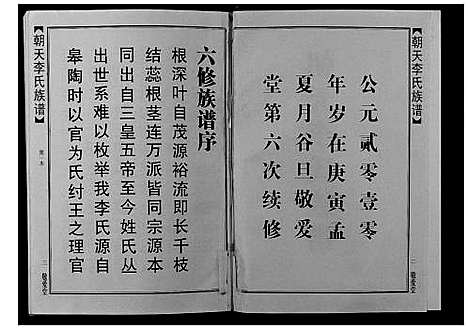 朝天李氏族谱
公元贰零壹零
年岁在庚寅孟
夏月谷旦敬爱
堂第六次续修
二 敬爱堂
六修族谱序
根深叶自茂源裕流即长千枝
结蕊根茎连万派皆同宗源本
同出自三皇五帝至今姓氏丛
出世系难以枚举我李氏源自
皋陶时以官为氏纣王之理官
朝天李氏族谱
三 敬爱堂